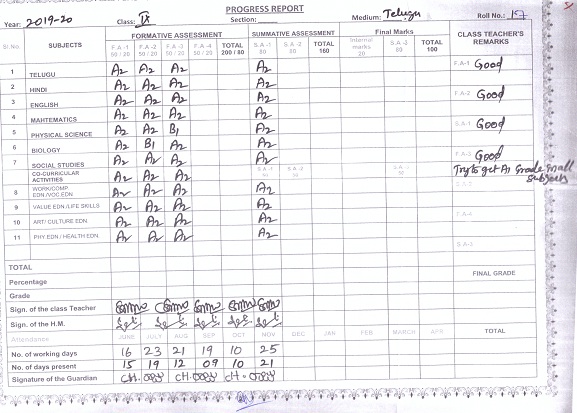 PROGRESS REPORT
Year: 2019-20 Class: IX Section: Medium: Telugu Roll No.: 17
Sl.No. SUBJECTS FORMATIVE ASSESSMENT SUMMATIVE ASSESSMENT Final Marks CLASS TEACHER'S REMARKS
F.A-1 50 / 20 F.A-2 50 / 20 F.A-3 50 / 20 F.A-4 50 / 20 TOTAL 200 / 80 S.A-1 80 S.A-2 80 TOTAL 160 Internal marks 20 S.A-3 80 TOTAL 100
1 TELUGU A2 A2 A2 A2 F.A-1 Good
2 HINDI A2 A2 A2 A2
3 ENGLISH A2 A2 A2 A2 F.A-2 Good
4 MAHTEMATICS A2 A2 A2 A2
5 PHYSICAL SCIENCE A2 A2 B1 A2 S.A-1 Good
6 BIOLOGY A2 B1 A2 A2
7 SOCIAL STUDIES A2 A2 A2 A2 F.A-3 Good
CO-CURRICULAR ACTIVITIES S.A-1 50 S.A-2 50 S.A-3 50 Try to get A1 Grade in all subjects
8 WORK/COMP. EDN./VOC.EDN A2 A2 A2 A2
9 VALUE EDN./LIFE SKILLS A2 A2 A2 A2
10 ART/ CULTURE EDN A2 A2 A2 A2 F.A-4
11 PHY.EDN / HEALTH EDN A2 A2 A2 A2
S.A-3
TOTAL
Percentage FINAL GRADE
Grade
Sign. of the class Teacher
Sign. of the H.M.
Attendance JUNE JULY AUG SEP OCT NOV DEC JAN FEB MARCH APR TOTAL
No. of working days 16 23 21 19 10 25
No. of days present 15 19 12 09 10 21
Signature of the Guardian